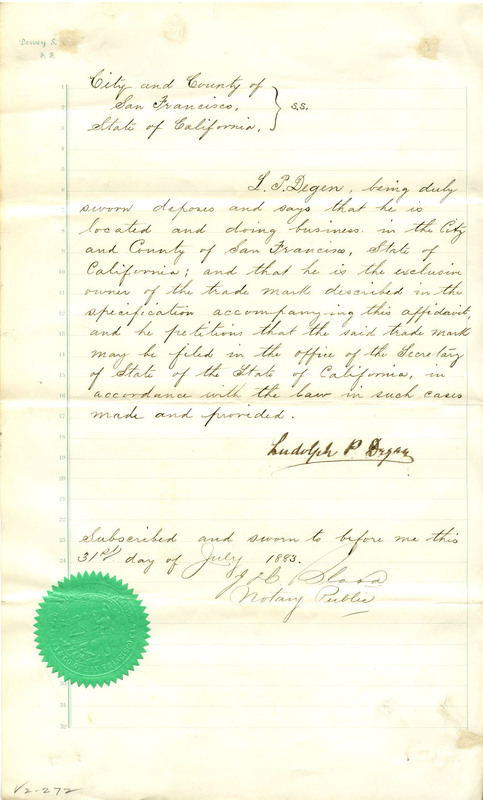 Dewey &
City and County of
San Francisco,
State of California.
} s.s.
L. P. Degen, being duly
sworn deposes and says that he is
located and doing business in the City
and County of San Francisco, State of
California; and that he is the exclusive
owner of the trade mark described in the
specification accompanying this affidavit,
and he petitions that the said trade mark
may be filed in the office of the Secretary
of State of the State of California, in
accordance with the law in such cases
made and provided.
Ludolph P. Degen
Subscribed and sworn to before me this
31st day of July 1883.
Notary Public
V2-272